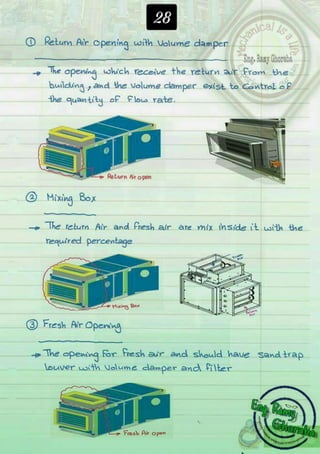 28
① Return Air Opening with Volume damper
Mechanical is a
Eng. Ramy Ghoraba
→ The opening which receive the return air from the
building, and the volume damper exist to Control of
the quantity of flow rate.
Return Air open
② Mixing Box
→ The return Air and fresh air are mix inside it with the
required percentage
Mixing Box
③ Fresh Air Opening
→ The opening for fresh air and should have sand trap
louver with volume damper and filter
Fresh Air open
Eng. Ramy
Ghoraba